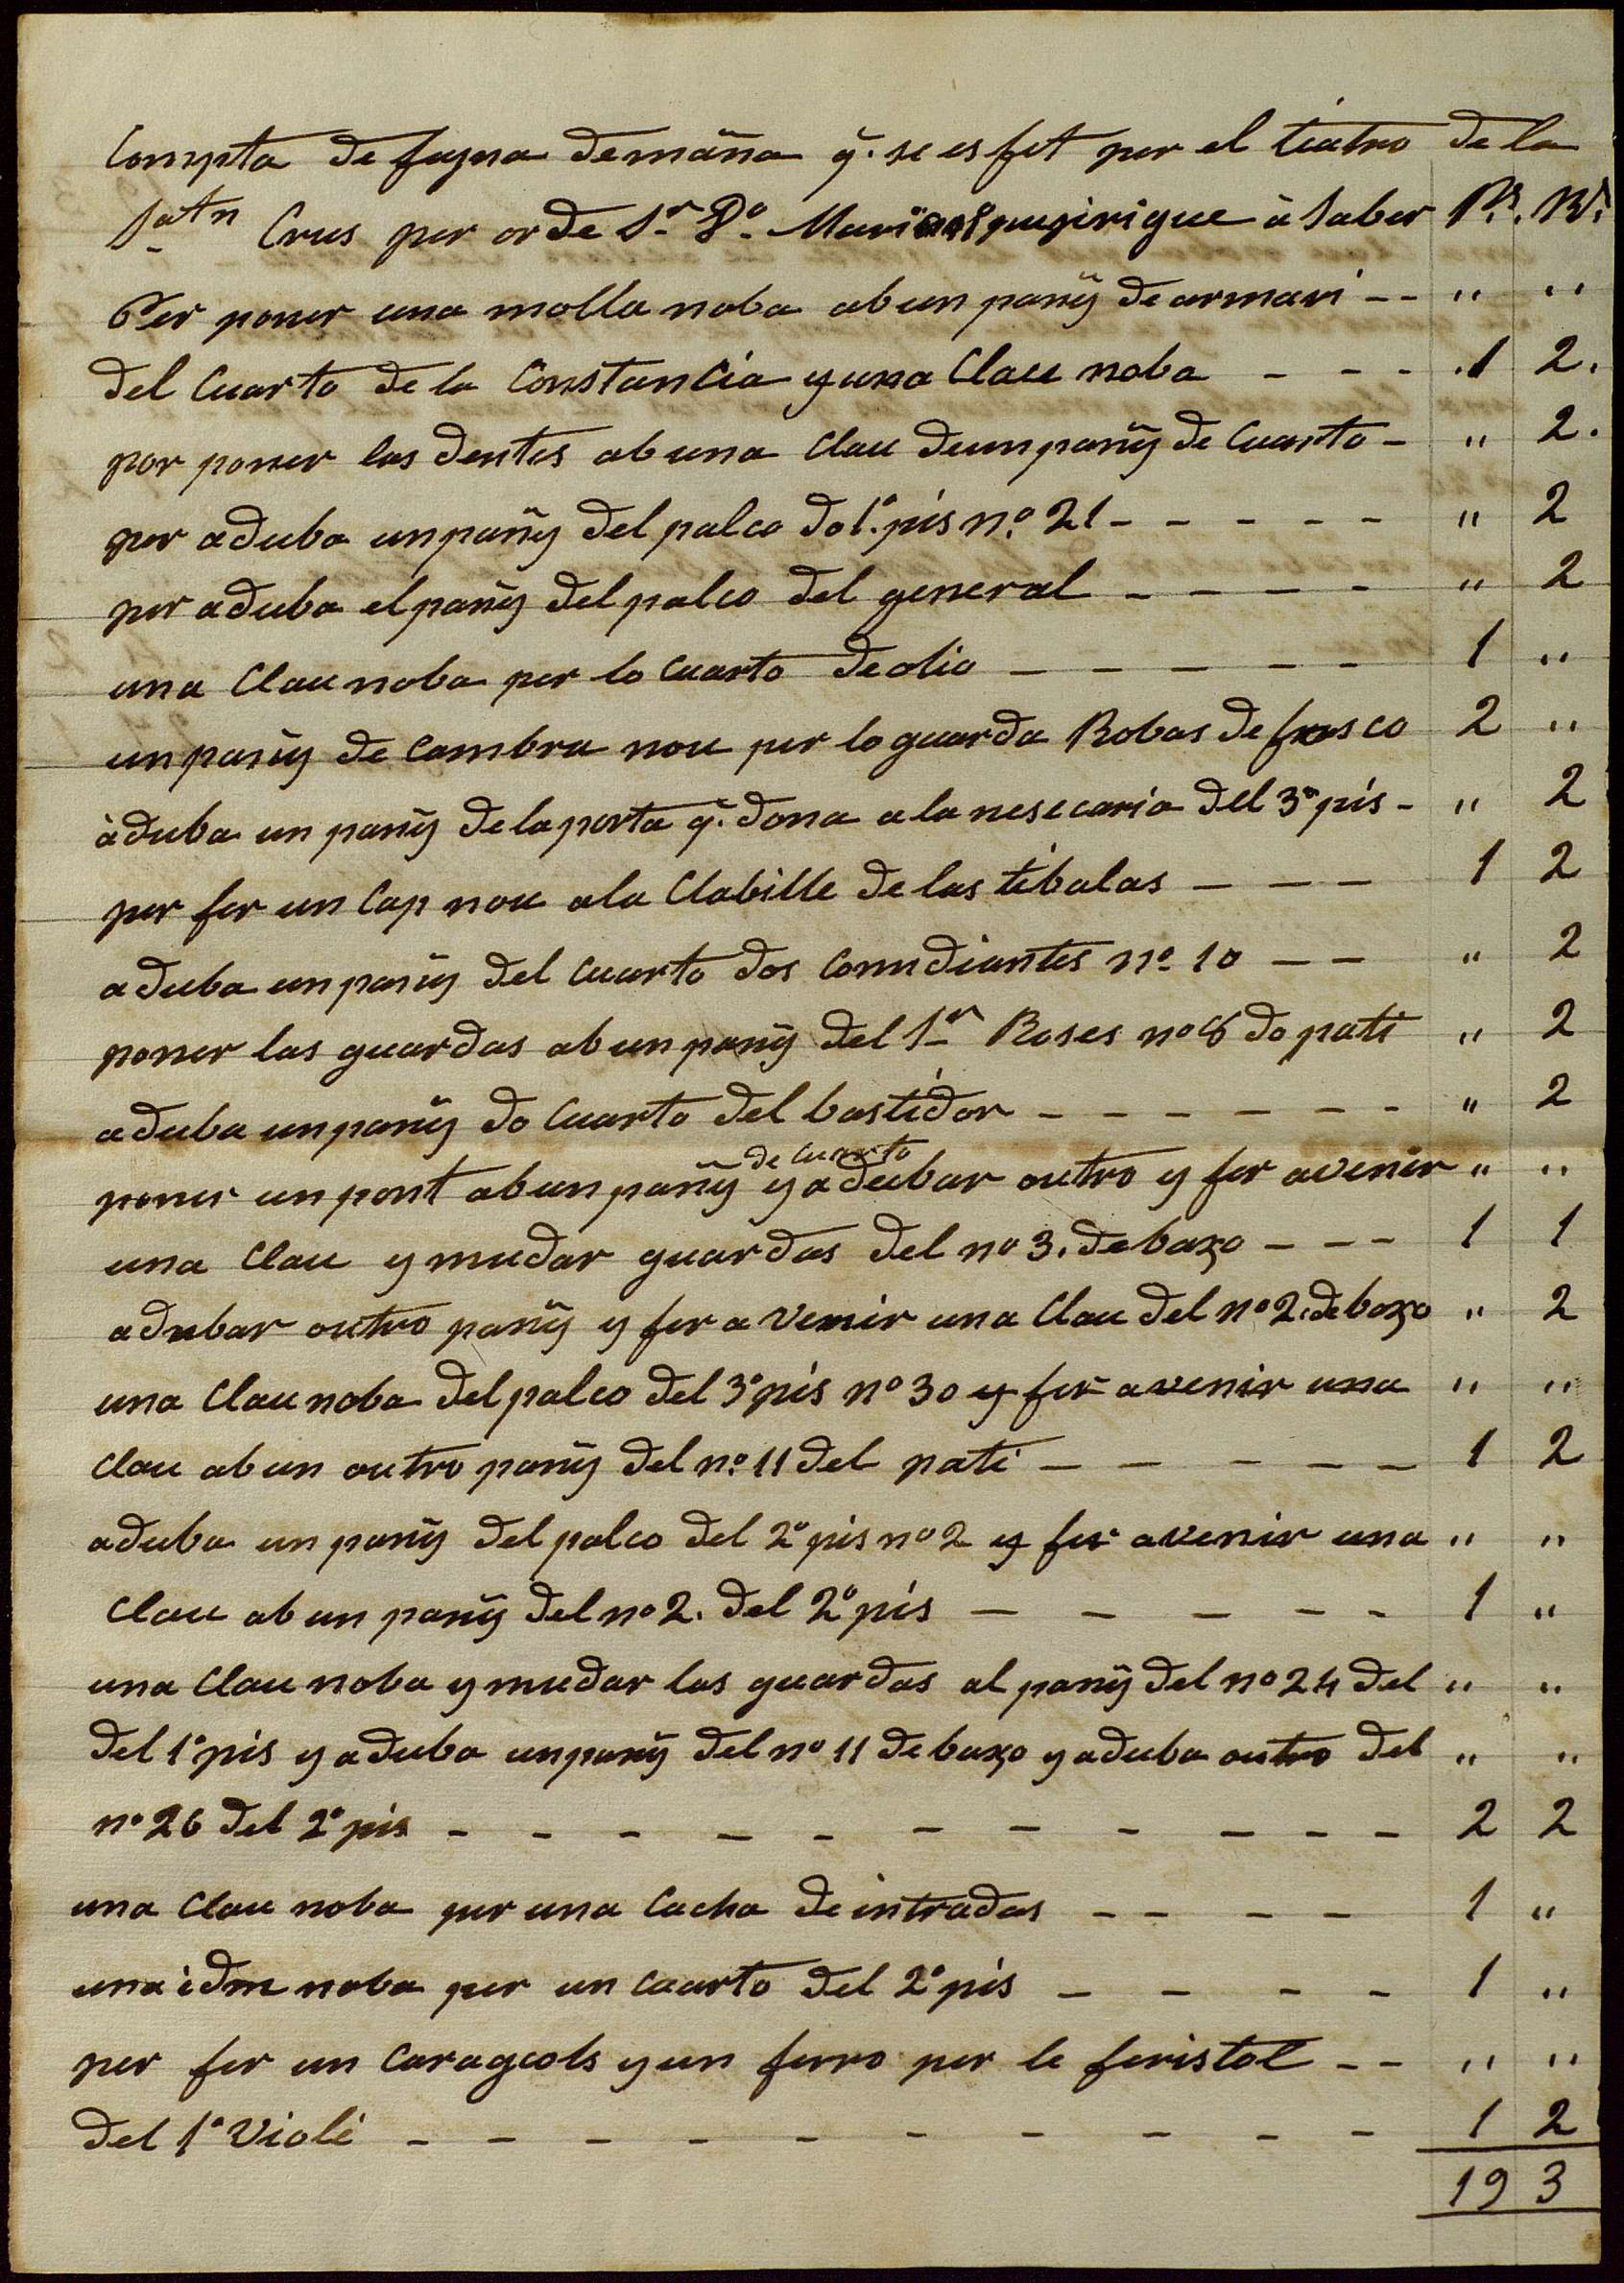 Compta de fayna demañana q. se es fet per el teatro de la
Satn Crus per orde Sr. Dn. Marian pugirigue à Saber Ps. Rs.
Per poner una molla noba ab un pañy de armari - - " "
del Cuarto de la Constancia y una Clau noba - - - 1 2.
por poner las dentes ab una Clau de un pañy de Cuarto - " 2.
per aduba un pañy del palco do 1º. pis nº. 21 - - - - - " 2
per aduba el pañy del palco del general - - - - " 2
una Clau noba per lo Cuarto de olio - - - - - 1 "
un pañy de Cambra nou per lo guarda Robas de frasco 2 "
àduba un pañy de la porta q. dona a la nesecaria del 3º pis - " 2
per fer un Cap nou a la Clabille de las tibalas - - - 1 2
aduba un pañy del Cuarto dos Comediantes nº. 10 - - " 2
poner las guardas ab un pañy del Sr Roses nº 8 do pati " 2
aduba un pañy do Cuarto del bastidor - - - - - - " 2
de Cuarto
poner un pont ab un pañy y adubar outro y fer avenir " "
una Clau y mudar guardas del nº 3. de baxo - - - 1 1
adubar outro pañy y fer a venir una Clau del nº 2. de baxo " 2
una Clau noba del palco del 3º pis nº 30 y fer avenir una " "
Clau ab un outro pañy del nº. 11 del pati - - - - - 1 2
aduba un pañy del palco del 2º pis nº 2 y fer avenir una " "
Clau ab un pañy del nº 2. del 2º pis - - - - - 1 "
una Clau noba y mudar las guardas al pañy del nº 24 del " "
del 1º pis y aduba un pañy del nº 11 de baxo y aduba outro del " "
nº 26 del 2º pis - - - - - - - - - - - 2 2
una Clau noba per una Cacha de intradas - - - - 1 "
una idm noba per un Cuarto del 2º pis - - - - 1 "
per fer un Caragols y un ferro per le feristol - - " "
del 1º Violi - - - - - - - - - - 1 2
19 3